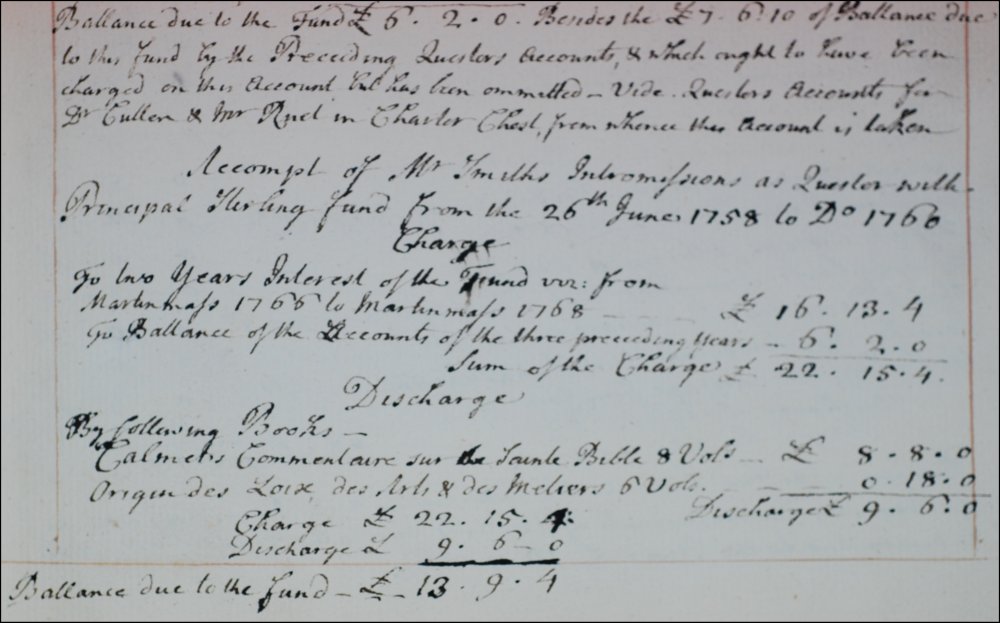 Ballance due to the Fund £ 6 . 2 . 0 . Besides the £ 7 . 6 . 10 of Ballance due
to this fund by the Preceeding Questors Accounts, & which ought to have been
charged on this Account but has been ommitted – Vide . Questors Accounts for
Dr Cullen & Mr Ruet in Charter Chest, from whence this Account is taken
Accompt of Mr Smiths Intromissions as Questor with
Principal Stirling fund from the 26th June 1758 to Do 1760
Charge
To two Years Interest of the Fund viz: from
Martinmass 1766 to Martinmass 1768 £ 16 . 13 . 4
To Ballance of the Accounts of the three preceeding years – 6 . 2 . 0
Sum of the Charge £ 22 . 15 . 4 .
Discharge
By following Books –
Calmets Commentaire sur la Sainte Bible 8 Vols – £ 8 . 8 . 0
Origin des Loix, des Arts & des Metiers 6 Vols . 0 . 18 . 0
Charge £ 22 . 15 . 4 Discharge £ 9 . 6 . 0
Discharge £ 9 . 6 – 0
Ballance due to the fund – £ – 13 . 9 . 4